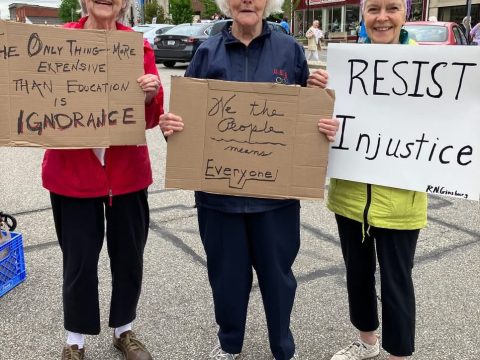 THE ONLY THING MORE
EXPENSIVE
THAN EDUCATION
IS
IGNORANCE
We the
People
means
Everyone!
RESIST
Injustice
R N Ginsburg